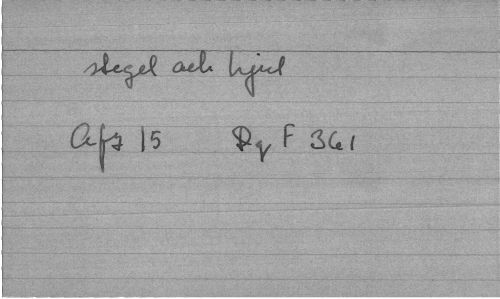 stegel och hjul
Afz 15 Dq F 361